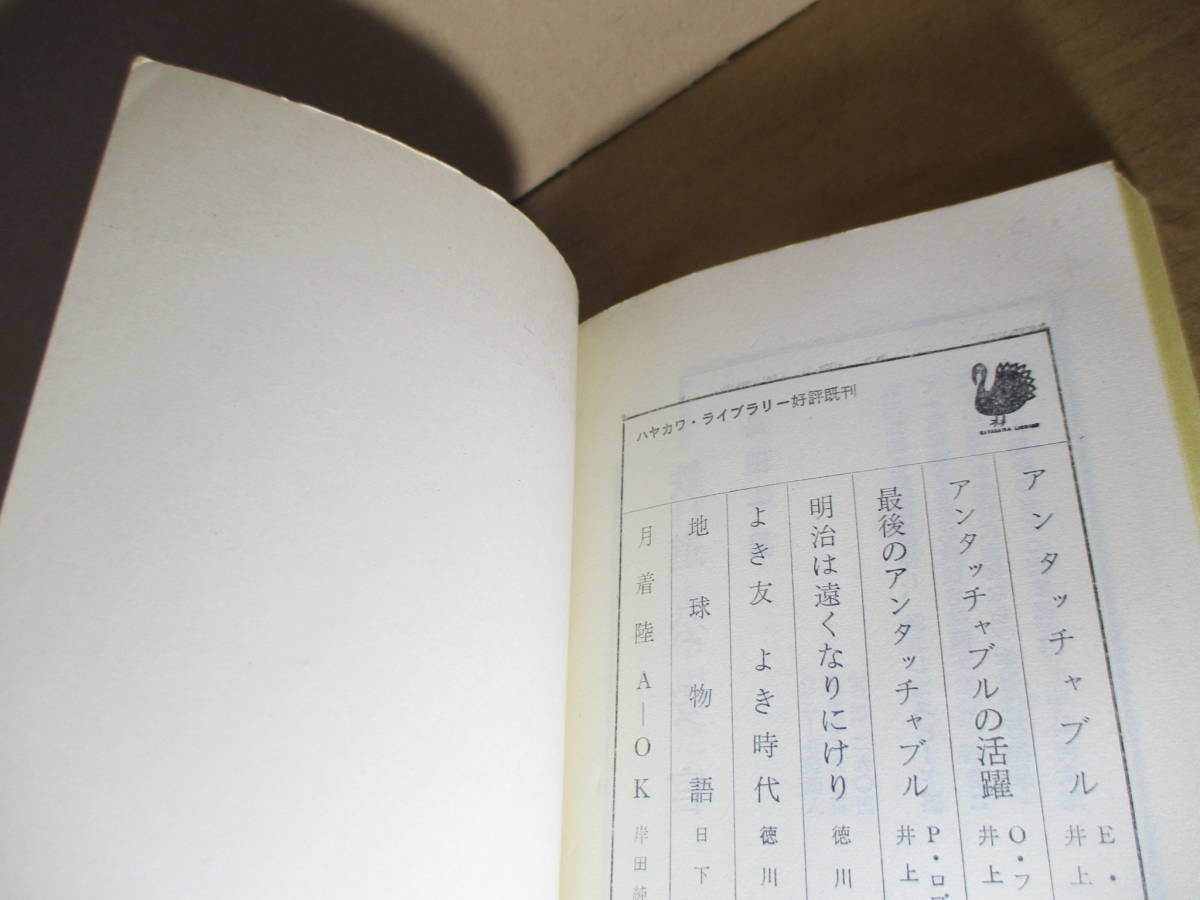 ハヤカワ・ライブラリー好評既刊
アンタッチャブル
E・
井上
アンタッチャブルの活躍
O・フ
井上
最後のアンタッチャブル
P・ロブ
井上
明治は遠くなりにけり
徳川
よき友 よき時代
徳川
地球物語
日下
月着陸A—OK
岸田純